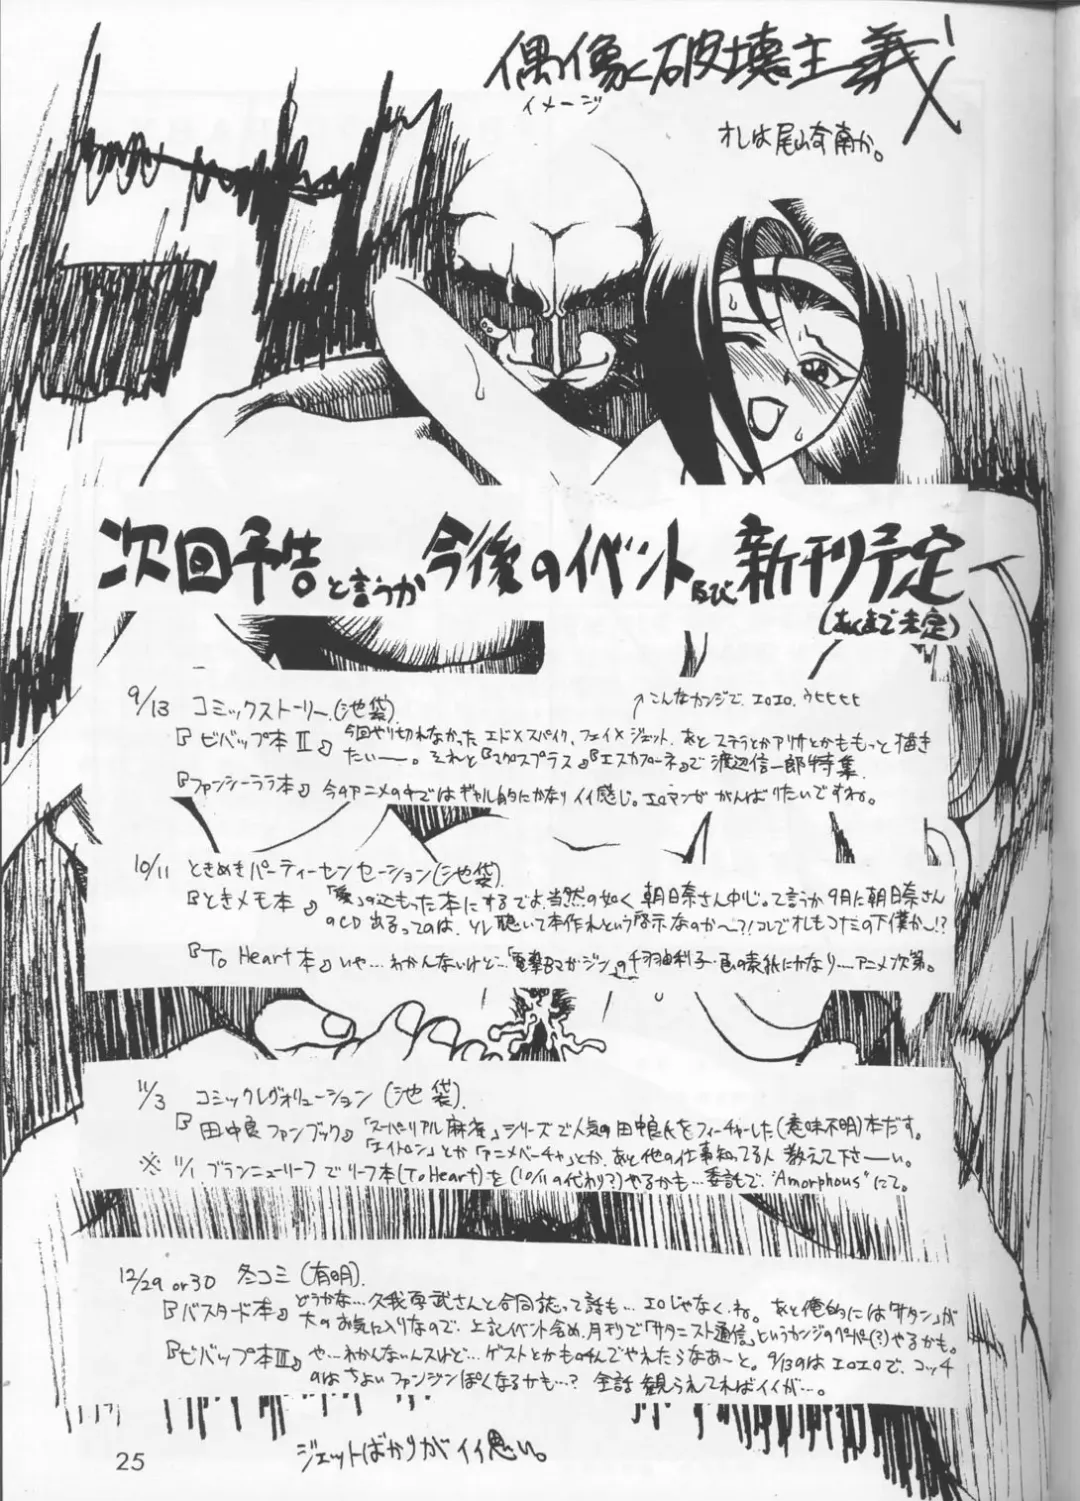 偶像破壊主義!
イメージ
オレは尾崎南か。
次回予告と言うか今後のイベント及び新刊予定
(あくまで未定)
9/13 コミックストーリー(池袋).
↑こんなカンジで、エロエロ。ウヒヒヒヒ
『ビバップ本Ⅱ』今回やり切れなかったエド×スパイク、フェイ×ジェット、あとステラとかアリサとかももっと描き
たいー。それと『マクロスプラス』『エスカフローネ』で渡辺信一郎特集.
『ファンシーララ本』今のアニメの中ではギャル的にかなりイイ感じ。エロマンガがんばりたいですね。
10/11 ときめきパーティーセンセーション(池袋).
『ときメモ本』「愛」のこもった本にするでよ。当然の如く朝日奈さん中心。って言うか9月に朝日奈さん
のCD出るってのは、ソレ聴いて本作れという啓示なのかー?!コレでオレもコナミの下僕かー!?
『To Heart本』いや…わかんないけど…「電撃Bマガジン」の千羽由利子・色の表紙にかなり……アニメ次第。
11/3 コミックレヴォリューション(池袋).
『田中良ファンブック』「スーパーリアル麻雀」シリーズで人気の田中良氏をフィーチャーした(意味不明)本だす。
「エイトロン」とか「アニメベーチャ」とか、あと他の仕事知ってる人教えて下さーい。
※11/1 ブランニューリーフでリーフ本(To Heart)を(10/11の代わり?)やるかも…委託もで、"Amorphous"にて。
12/29 or 30 冬コミ(有明).
『バスタード本』どうかな…久我厚武さんと合同誌って話も…エロじゃなく、ね。あと俺的には「サタン」が
大のお気に入りなので、上記イベント含め、月刊で「サタニスト通信」というカンジのペーパー(?)やるかも。
『ビバップ本Ⅲ』や…わかんないんスけど…ゲストとかもらんでやれたらなあーと。9/13のはエロエロで、コッチ
のはちょいファンジンぽくなるかも…?全話観られてればイイが…。
ジェットばかりがイイ思い。
25